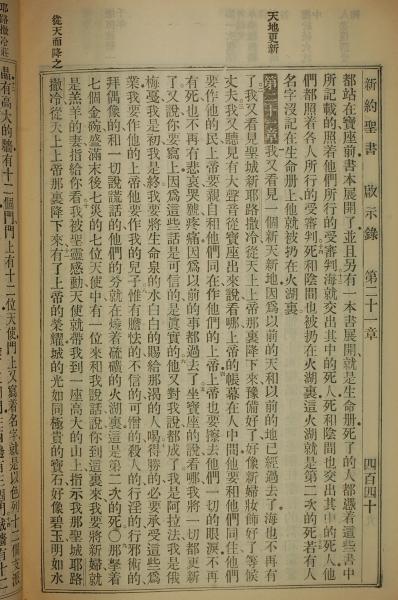 新約聖書 啟示錄 第二十一章 四百四十六
天地更新
都站在寶座前書本展開了並且另有一本書展開就是生命册死了的人都憑着這些書中
所記載的照着他們所行的受審判海就交出其中的死人死和陰間也交出其中的死人他
們都照着各人所行的受審判死和陰間也被扔在火湖裏這火湖就是第二次的死若有人
名字沒記在生命册上他就被扔在火湖裏
第二十一章我又看見一個新天新地因爲以前的天和以前的地已經過去了海也不再有
了我又看見聖城新耶路撒冷從天上上帝那裏降下來豫備好了好像新婦妝飾好了等候
丈夫我又聽見有大聲音從寶座出來說看哪上帝的帳幕在人中間他要和他們同住他們
要作他的民上帝要親自和他們同在作他們的上帝上帝也要擦去他們一切的眼淚不再
有死也不再有悲哀哭號疼痛因爲以前的事都過去了坐寶座的說看哪我將一切都更新
了又說你要寫上因爲這些話是可信的是眞實的他又對我說都成了我是阿拉法我是俄
梅戛我是初我是終我要將生命泉的水白白的賜給那渴的人喝得勝的必要承受這些爲
業我要作他的上帝他要作我的兒子惟有膽怯的不信的可憎的殺人的行淫的行邪術的
拜偶像的和一切說謊話的他們的分就在燒着硫磺的火湖裏這是第二次的死○那拏着
七個金碗盛滿末後七災的七位天使中有一位來和我說話說你到這裏來我要將新婦就
是羔羊的妻指給你看我被聖靈感動天使就帶我到一座高大的山上指示我那聖城耶路
撒冷從天上上帝那裏降下來有了上帝的榮耀城的光如同極貴的寶石好像碧玉明如水
從天而降之
耶路撒冷
晶有高大的牆有十二個門門上有十二位天使門上又寫着名字就是以色列十二個支派